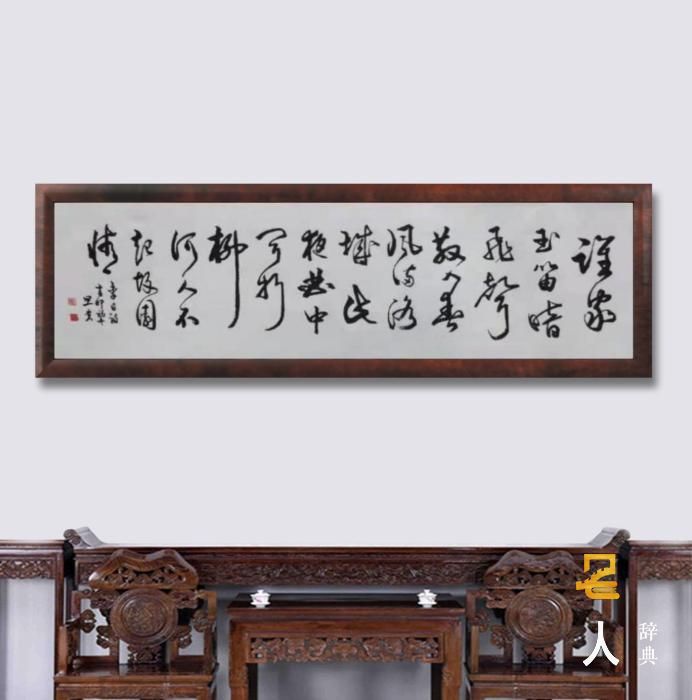 誰家
玉笛暗
飛聲
散入春
風滿洛
城此
夜曲中
聞折
柳
何人不
起故園
情
李白詩
名人
辞典